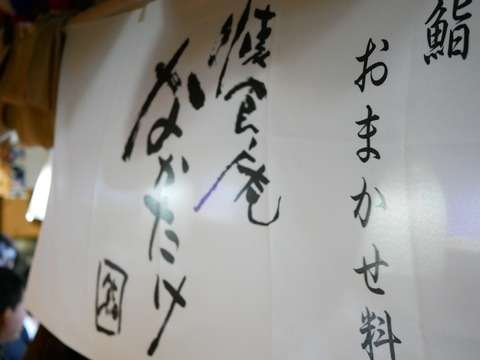 鮨
おまかせ料
食庵
なかたけ